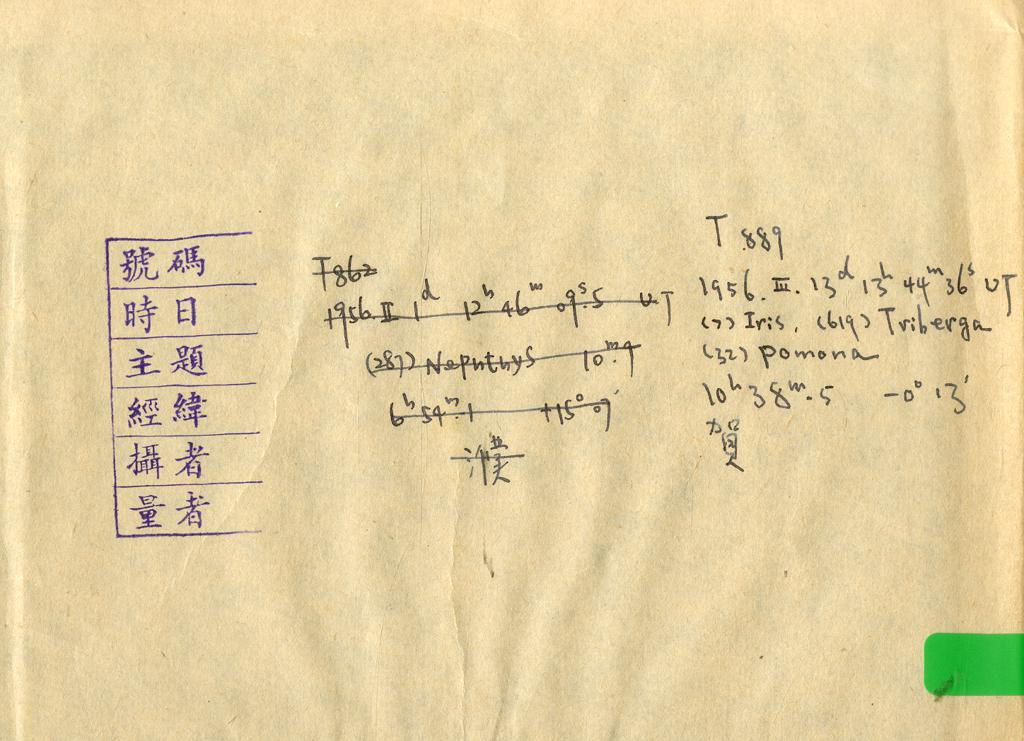 號碼
時日
主題
經緯
攝者
量者
T862
1956.II 1ᵈ 12ʰ 46ᵐ 09ˢ.5 UT
(287) Nephthys 10ᵐ.9
6ʰ 54ᵐ.1 +15° 07′
濮
T 889
1956.II.13ᵈ 13ʰ 44ᵐ 36ˢ UT
(7) Iris, (619) Triberga
(32) Pomona
10ʰ 38ᵐ.5 -0° 13′
賀